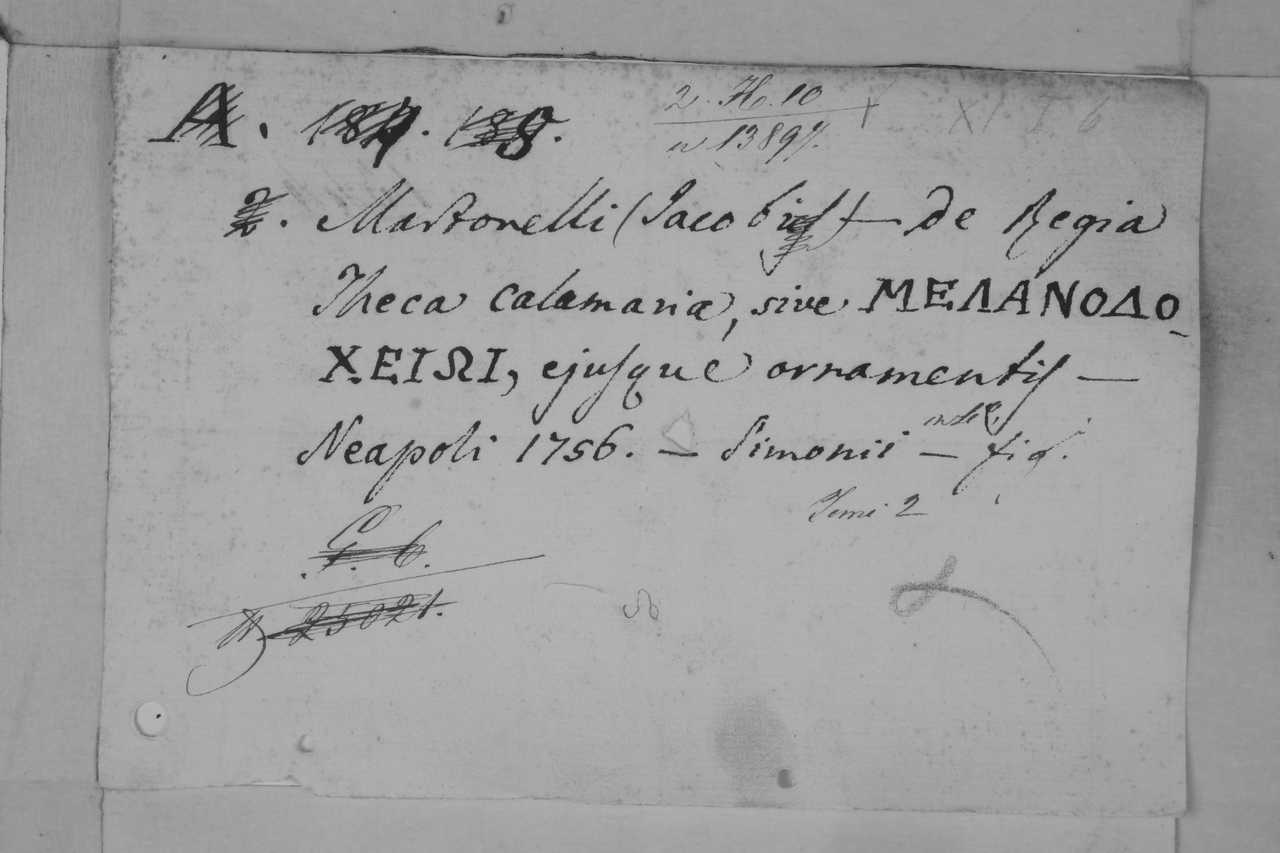 A. 184. 188.
2. Ho. 10
n 13897.
XI. I. 6
2. Martorelli (Jacobi) — de Regia
Theca calamaria, sive ΜΕΛΑΝΟΔΟ-
ΧΕΙΩΙ, ejusque ornamentis —
Neapoli 1756. — Simonii — fig.
Tomi 2
G. 6.
N. 25021.